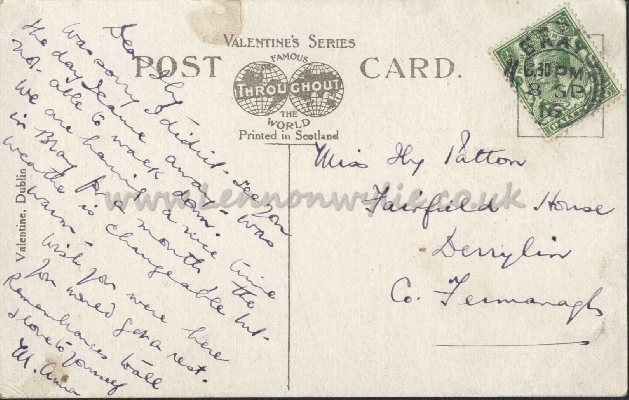 VALENTINE'S SERIES
POST CARD.
FAMOUS
THROUGHOUT
THE
WORLD
Printed in Scotland
BRAY
6.30 PM
8 SP
16
Valentine, Dublin
Dear
was sorry I didn't see you
the day I came away was
not able to walk down.
we are having a nice time
in Bray for a month the
weather is changeable but
warm. wish you were here
you would get a rest.
Remembrances to all
& love to yourself
M. Anna
Miss Patton
Fairfield House
Derrylin
Co. Fermanagh
www.lennonwylie.co.uk